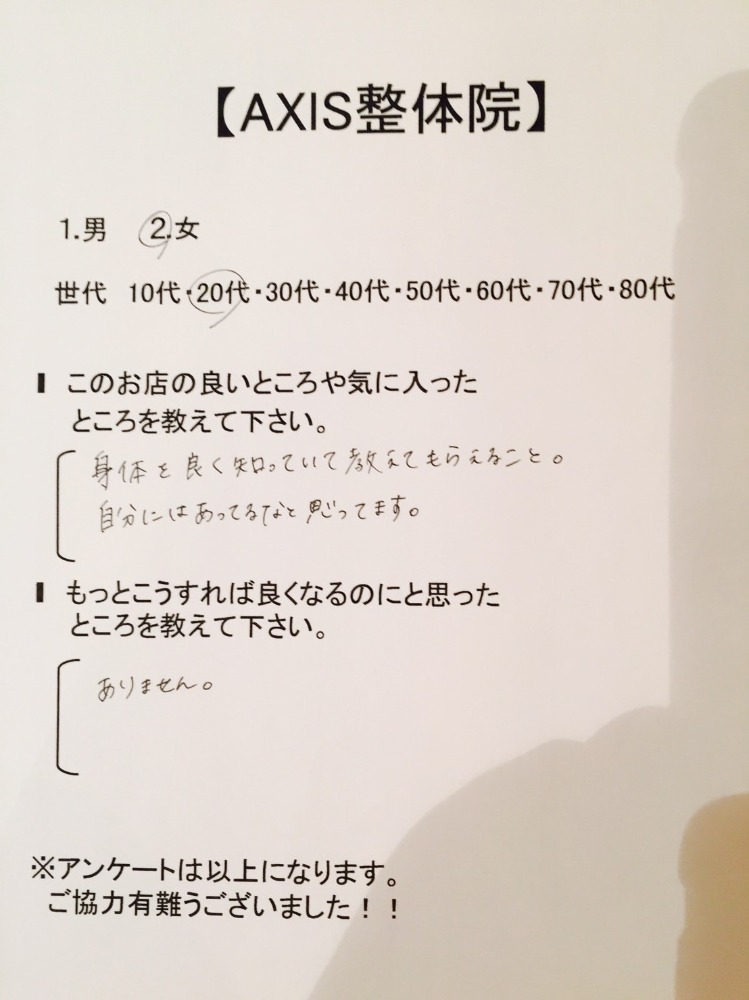 【AXIS整体院】
1.男 2.女
世代 10代・20代・30代・40代・50代・60代・70代・80代
このお店の良いところや気に入った
ところを教えて下さい。
身体を良く知っていて教えてもらえること。
自分にはあってるなと思ってます。
もっとこうすれば良くなるのにと思った
ところを教えて下さい。
ありません。
※アンケートは以上になります。
ご協力有難うございました！！